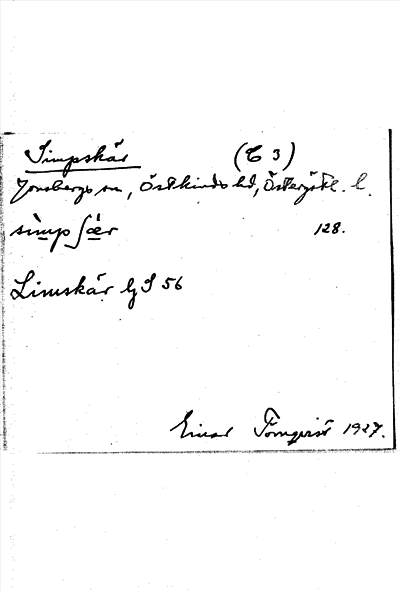 Simpskär (C 3)
Jonsbergs sn, Östkinds hd, Östergötl. l.
simpʃær 128.
Limskär GS 56
Einar Törnqvist 1927.